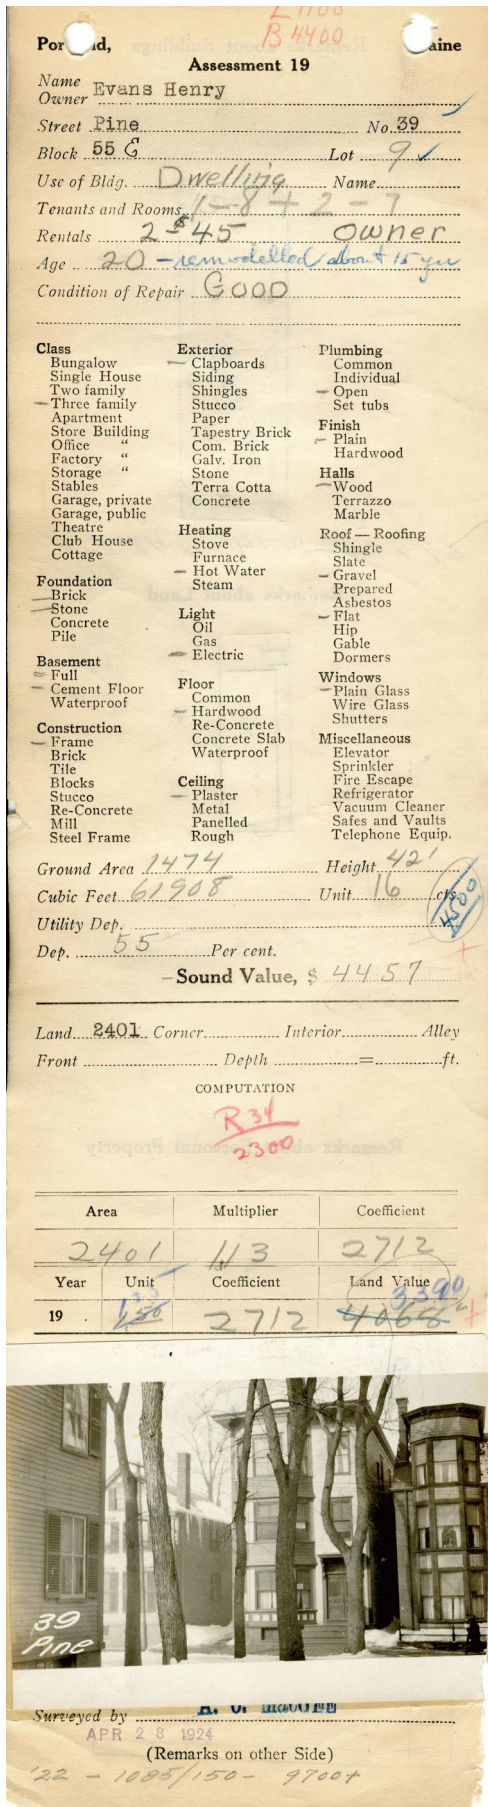 L 1100
B 4400
Por nd, aine
Assessment 19
Name
Owner Evans Henry
Street Pine No. 39
Block 55 E Lot 9 ✓
Use of Bldg. Dwelling Name
Tenants and Rooms 1 – 8 + 2 – 7
Rentals 2 – $45 owner
Age 20 – remodelled about 15 yrs
Condition of Repair GOOD
Class
Bungalow
Single House
Two family
– Three family
Apartment
Store Building
Office "
Factory "
Storage "
Stables
Garage, private
Garage, public
Theatre
Club House
Cottage
Foundation
– Brick
– Stone
Concrete
Pile
Basement
– Full
– Cement Floor
Waterproof
Construction
– Frame
Brick
Tile
Blocks
Stucco
Re-Concrete
Mill
Steel Frame
Exterior
– Clapboards
Siding
Shingles
Stucco
Paper
Tapestry Brick
Com. Brick
Galv. Iron
Stone
Terra Cotta
Concrete
Heating
Stove
Furnace
– Hot Water
Steam
Light
Oil
Gas
– Electric
Floor
Common
– Hardwood
Re-Concrete
Concrete Slab
Waterproof
Ceiling
– Plaster
Metal
Panelled
Rough
Plumbing
Common
Individual
– Open
Set tubs
Finish
– Plain
Hardwood
Halls
– Wood
Terrazzo
Marble
Roof — Roofing
Shingle
Slate
– Gravel
Prepared
Asbestos
– Flat
Hip
Gable
Dormers
Windows
– Plain Glass
Wire Glass
Shutters
Miscellaneous
Elevator
Sprinkler
Fire Escape
Refrigerator
Vacuum Cleaner
Safes and Vaults
Telephone Equip.
Ground Area 1474 Height 42'
Cubic Feet 61908 Unit 16 cts.
4500
Utility Dep.
Dep. 55 Per cent.
– Sound Value, $ 4457
Land 2401 Corner Interior Alley
Front Depth = ft.
COMPUTATION
R 34
2300
Area Multiplier Coefficient
2401 113 2712
Year Unit Coefficient Land Value
125 3390
19 . 1.50 2712 4068
39
Pine
Surveyed by
APR 28 1924
(Remarks on other Side)
'22 – 1085/150 – 9700+